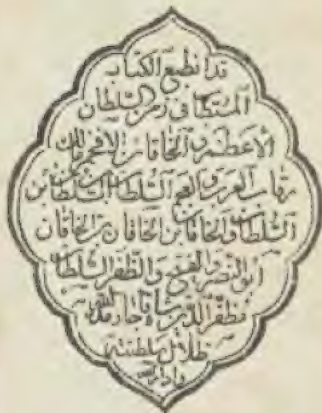 قد انطبع الكتاب
المستطاب فی زمن السلطان
الاعظم و الخاقان الافخم مالك
رقاب العرب و العجم السلطان بن السلطان بن
السلطان و الخاقان بن الخاقان بن الخاقان
ابو النصر و الفتح و الظفر السلطان
مظفر الدین شاه قاجار خلد الله
ظلال سلطنته